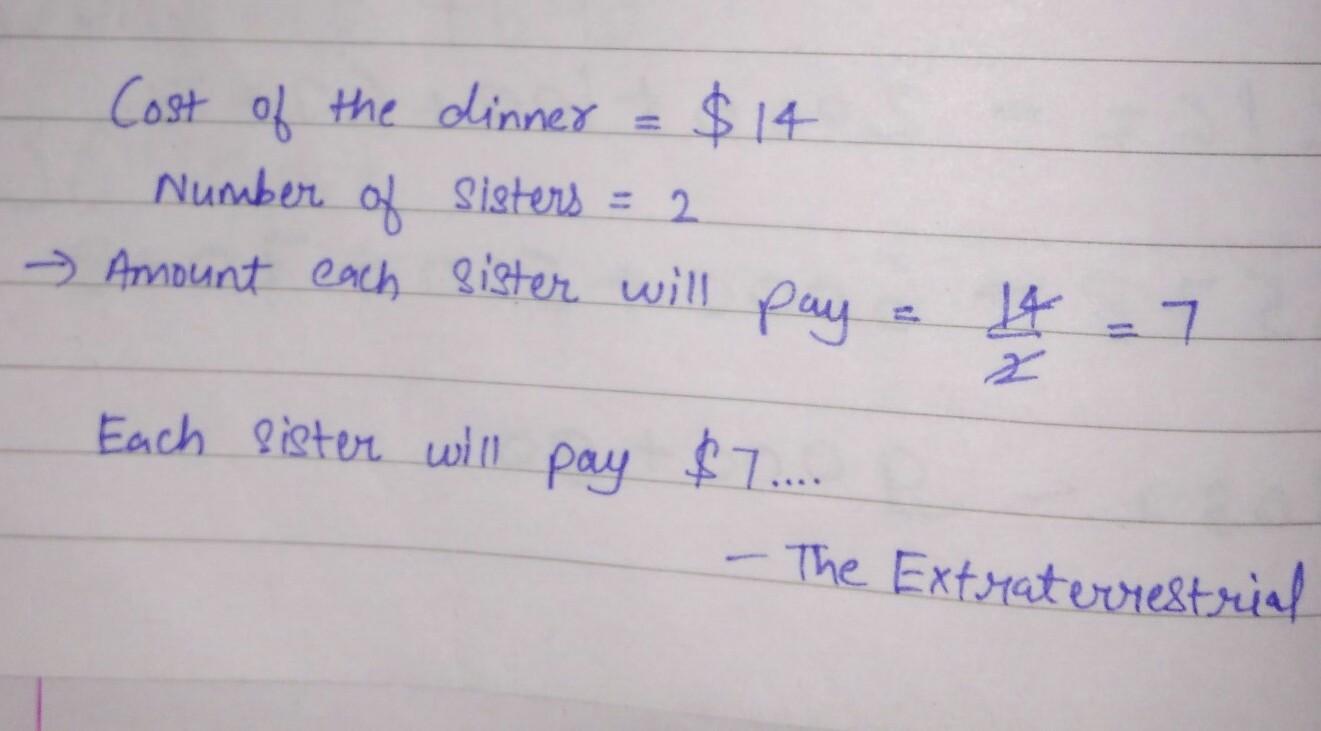 Cost of the dinner = $14
Number of sisters = 2
→ Amount each sister will pay = 14/2 = 7
Each sister will pay $7....
- The Extraterrestrial